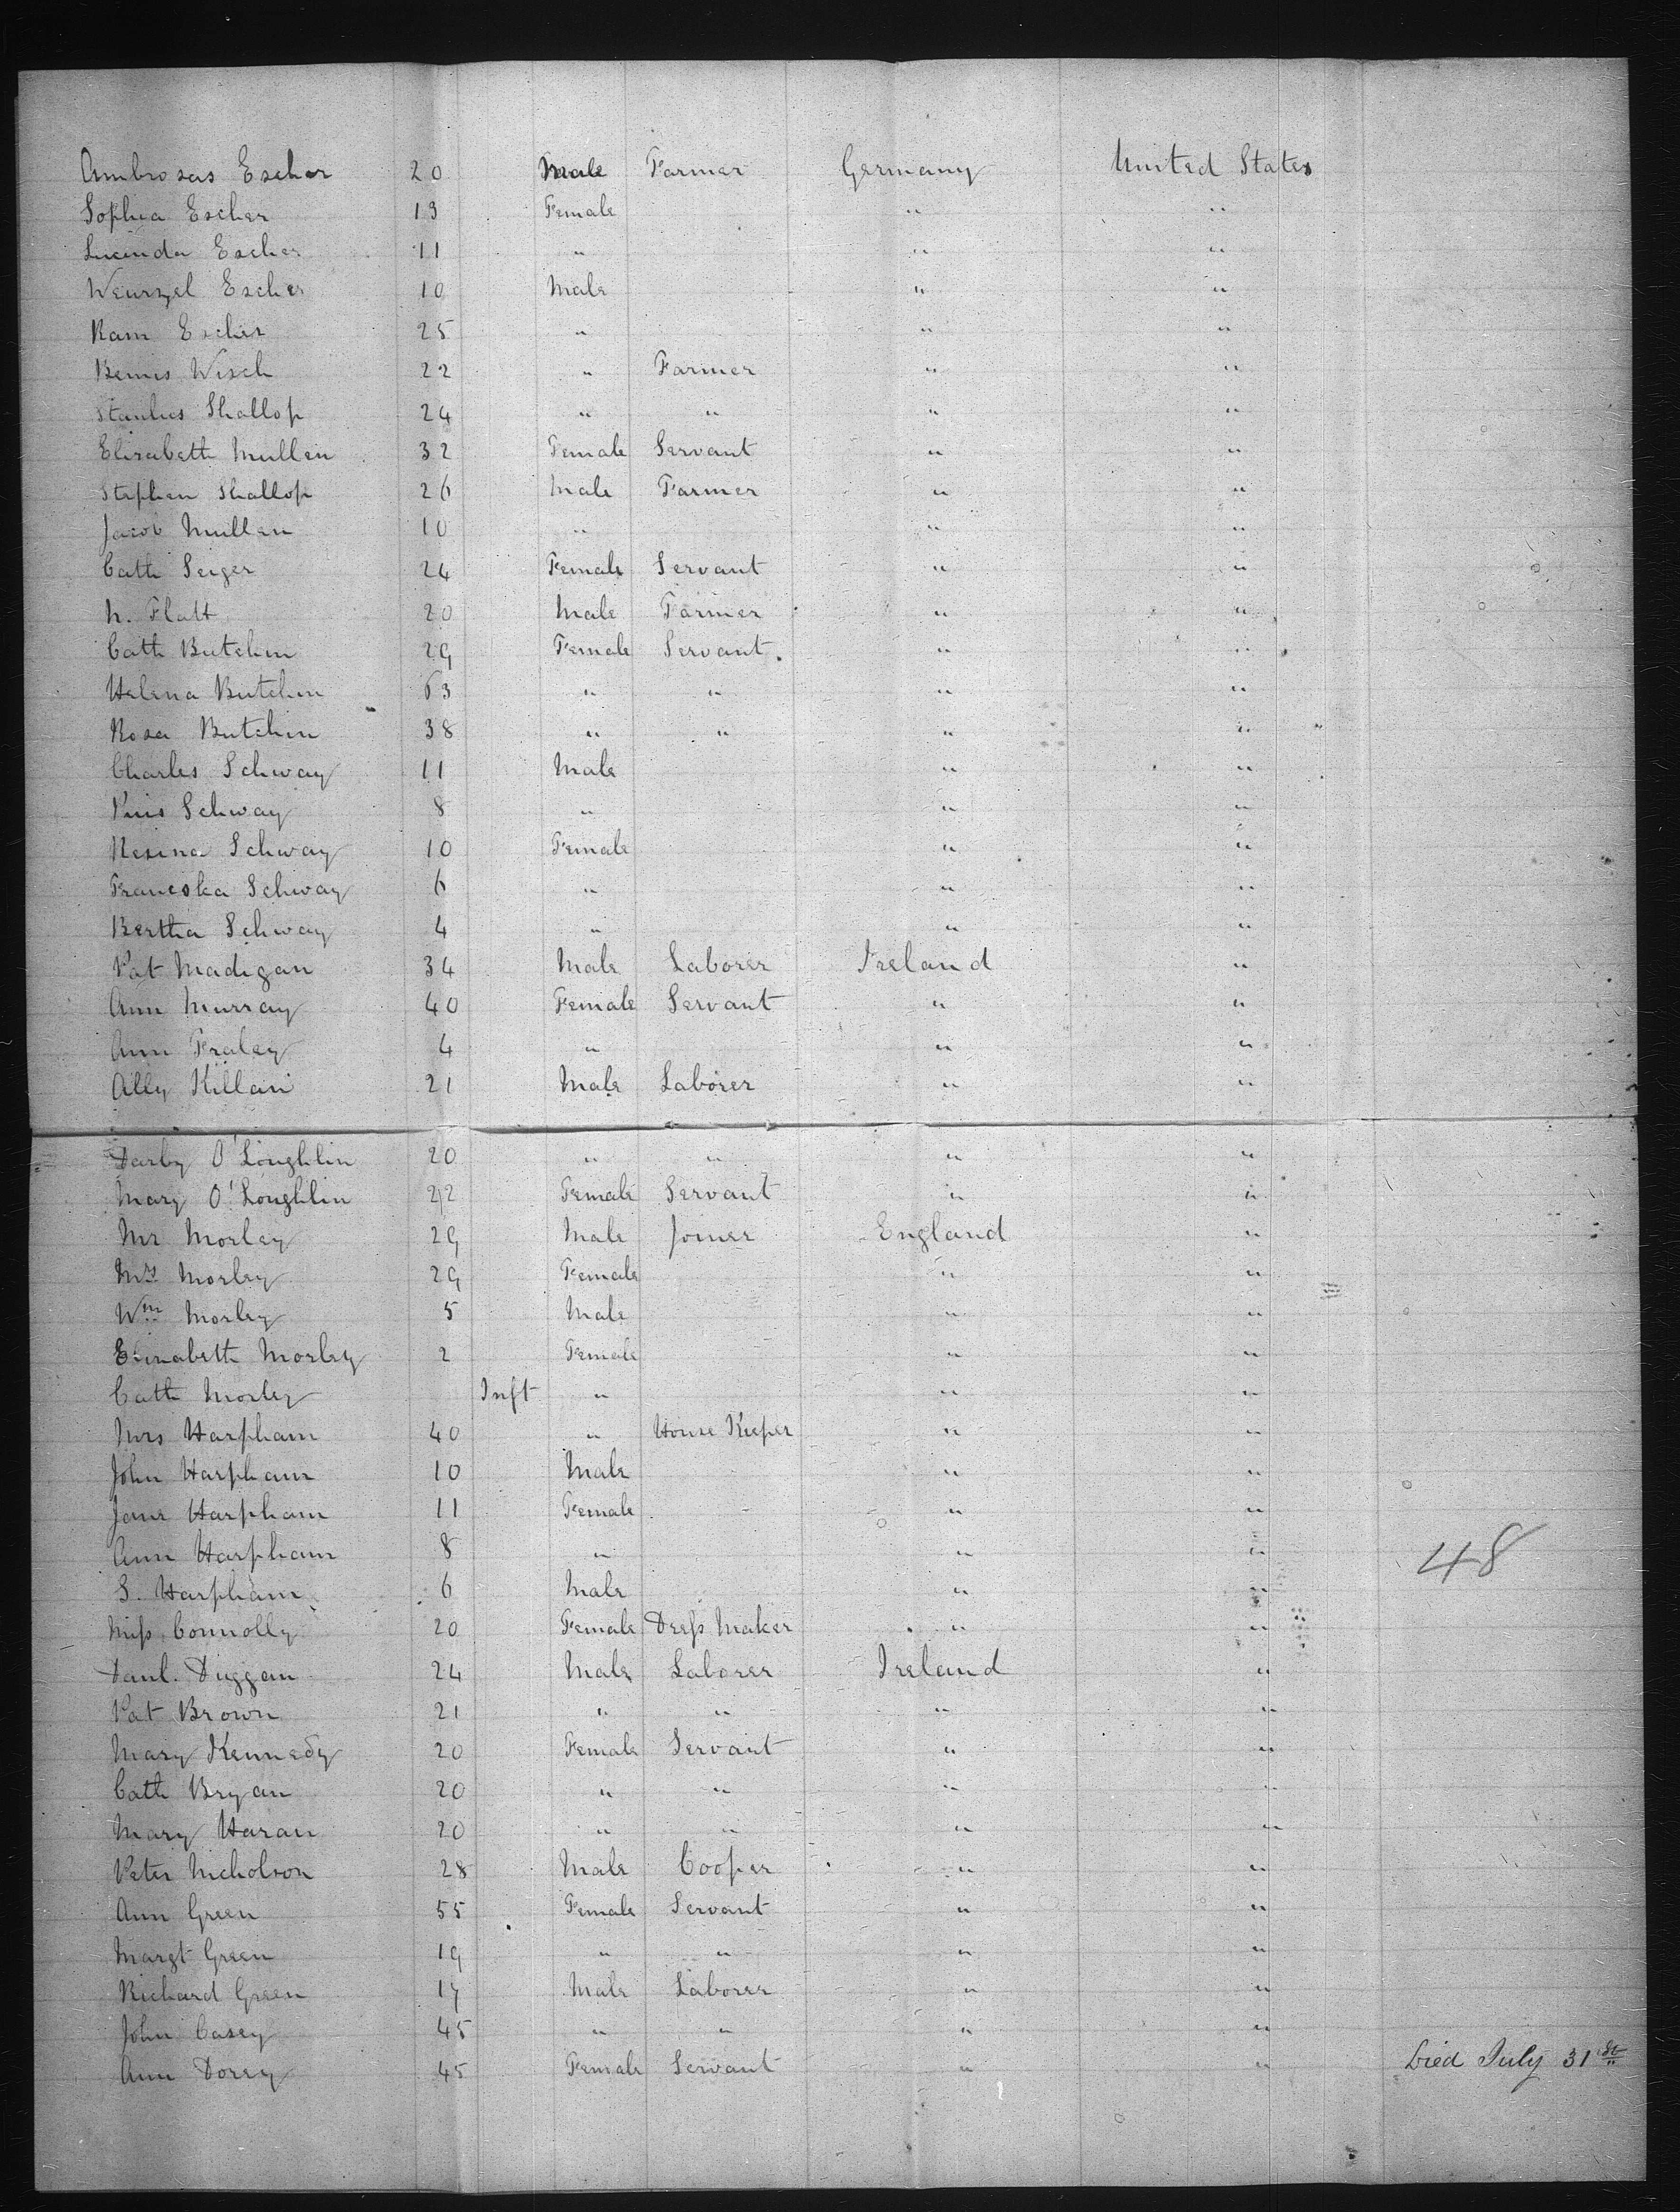 Ambrosas Escher 20 Male Farmer Germany United States
Sophia Escher 13 Female " "
Lucinda Escher 11 " " "
Weurzel Escher 10 Male " "
Ram Escher 25 " " "
Bemis Wisch 22 " Farmer " "
Stanlies Shallop 24 " " " "
Elisabeth Mullen 32 Female Servant " "
Stephen Shallop 26 Male Farmer " "
Jacob Mullen 10 " " "
Cath Seiger 24 Female Servant " "
N. Flatt 20 Male Farmer " "
Cath Butchin 29 Female Servant " "
Helena Butchin 63 " " " "
Rosa Butchin 38 " " " "
Charles Schway 11 Male " "
Schway 8 " " "
Resina Schway 10 Female " "
Franciska Schway 6 " " "
Bertha Schway 4 " " "
Pat Madigan 34 Male Laborer Ireland "
Ann Murray 40 Female Servant " "
Ann Fraley 4 " " "
Ally Killari 21 Male Laborer " "
Darby O'Loughlin 20 " " " "
Mary O'Loughlin 22 Female Servant " "
Mr Morley 29 Male Joiner England "
Mrs Morley 29 Female " "
Wm Morley 5 Male " "
Elisabeth Morley 2 Female " "
Cath Morley Inft " " "
Mrs Harpham 40 " House Keeper " "
John Harpham 10 Male " "
Jane Harpham 11 Female " "
Ann Harpham 8 " " " 48
S. Harpham 6 Male " "
Miss Connolly 20 Female Dress Maker " "
Danl. Duggan 24 Male Laborer Ireland "
Pat Brown 21 " " " "
Mary Kennedy 20 Female Servant " "
Cath Bryan 20 " " " "
Mary Haran 20 " " " "
Peter Nicholson 28 Male Cooper " "
Ann Green 55 Female Servant " "
Margt Green 19 " " " "
Richard Green 17 Male Laborer " "
John Casey 45 " " " "
Ann Dorey 45 Female Servant " " Died July 31st